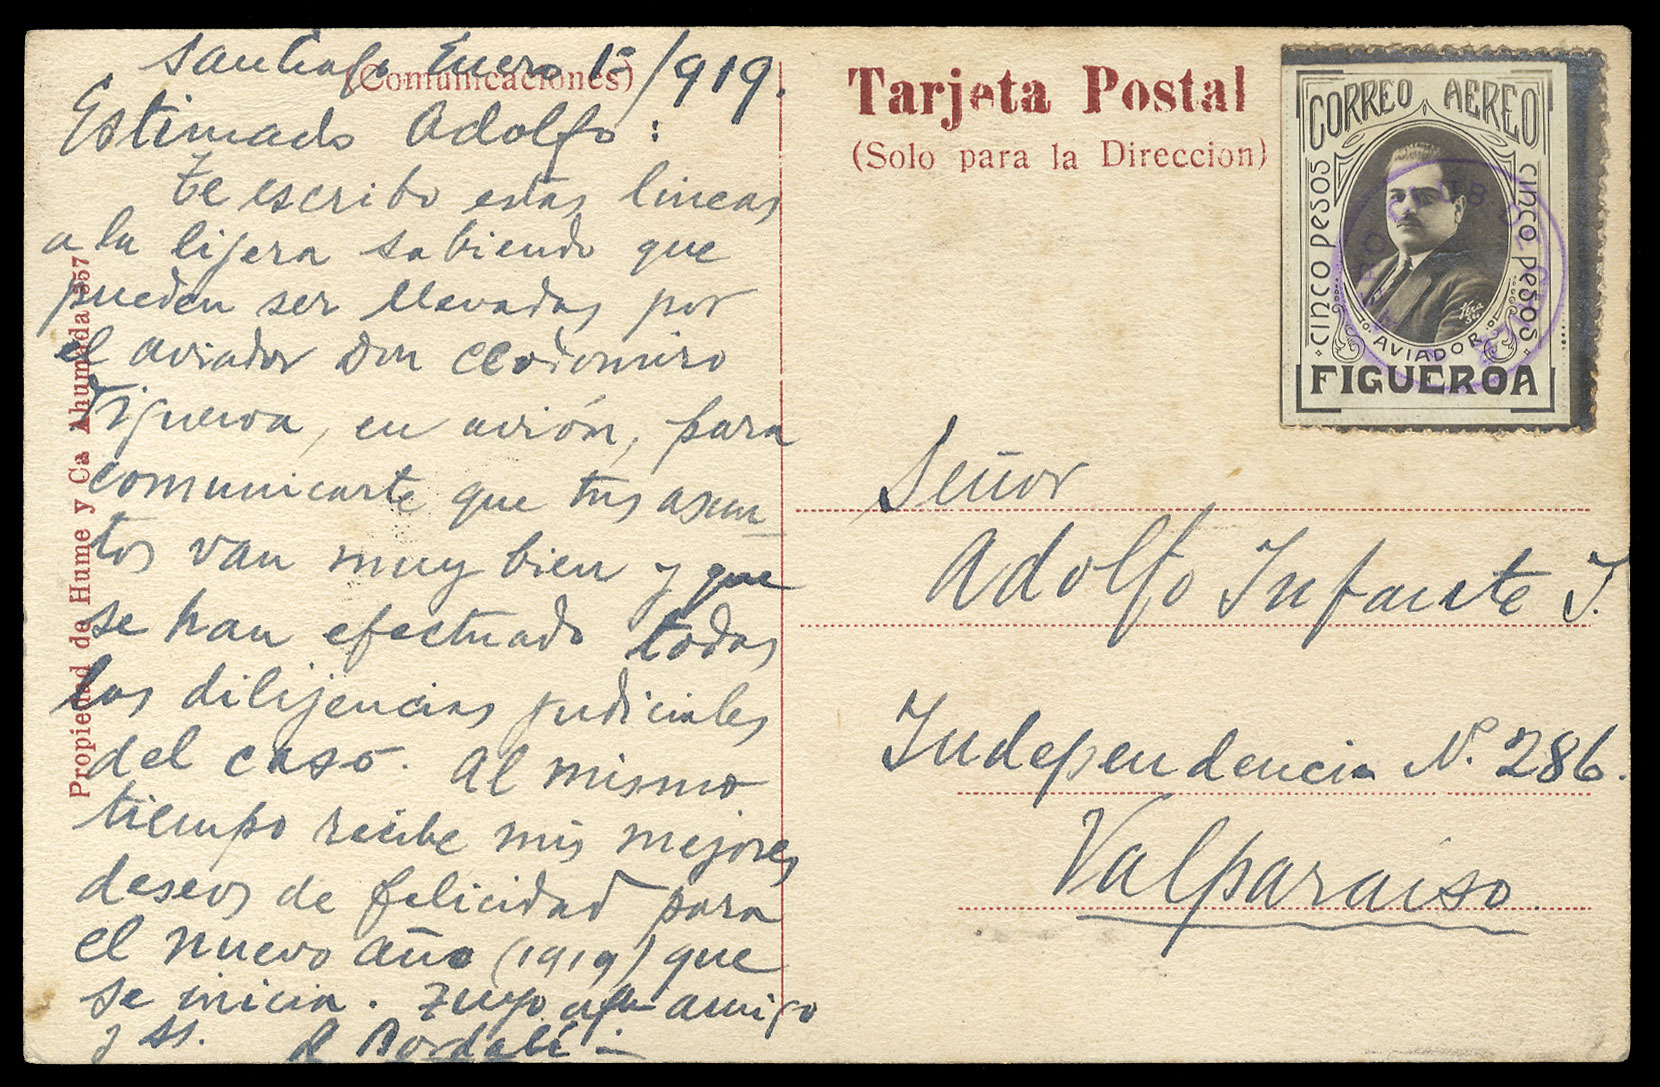 Santiago Enero 1º/919.
(Comunicaciones)
Estimado Adolfo:
Te escribo estas lineas
a la lijera sabiendo que
pueden ser llevadas por
el aviador Don Clodomiro
Figueroa, en avión, para
comunicarte que tus asun
tos van muy bien y que
se han efectuado todas
las dilijencias judiciales
del caso. Al mismo
tiempo recibe mis mejores
deseos de felicidad para
el nuevo año (1919) que
se inicia. Tuyo afmo amigo
y SS. Bordalí
Propiedad de Hume y Ca Ahumada 357
Tarjeta Postal
(Solo para la Direccion)
CORREO AEREO
CINCO PESOS
CINCO PESOS
AVIADOR
FIGUEROA
Señor
Adolfo Infante I.
Independencia Nº 286.
Valparaiso.